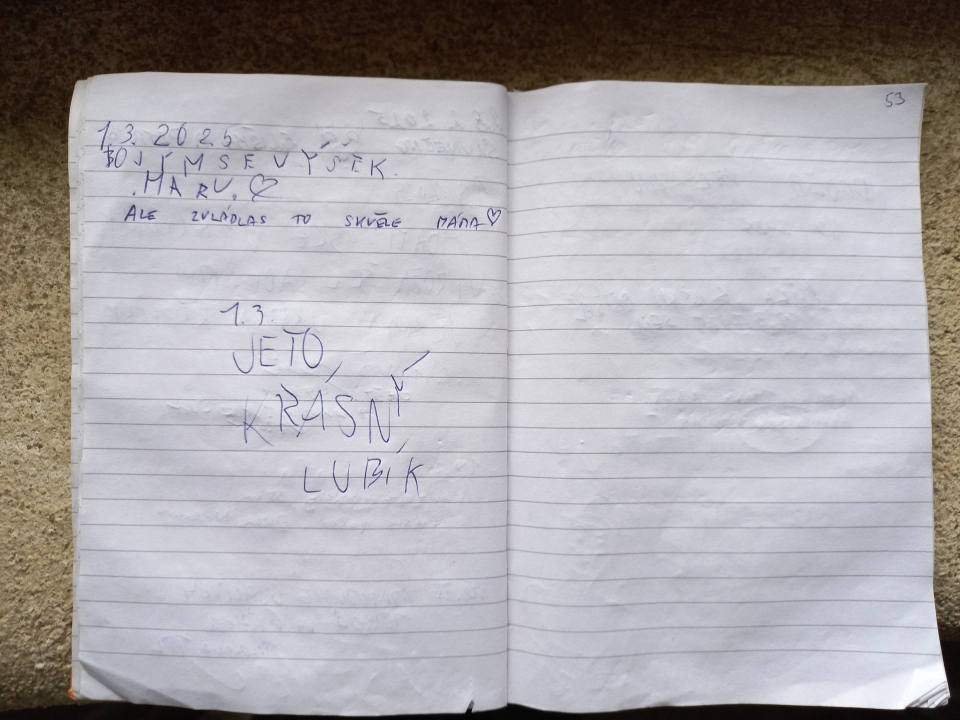 1.3. 2025
BOJÍM SE VÝŠEK.
.MARU.♡
ALE ZVLÁDLAS TO SKVĚLE MÁMA♡
1.3.
JE TO
KRÁSNÝ
LUBÍK
53